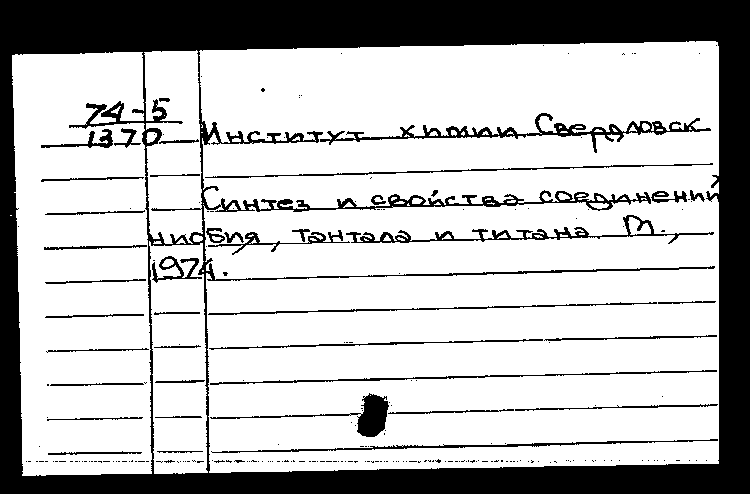 74-5
1370
Институт химии Свердловск
Синтез и свойства соединений
ниобия, тантала и титана М.,
1974.